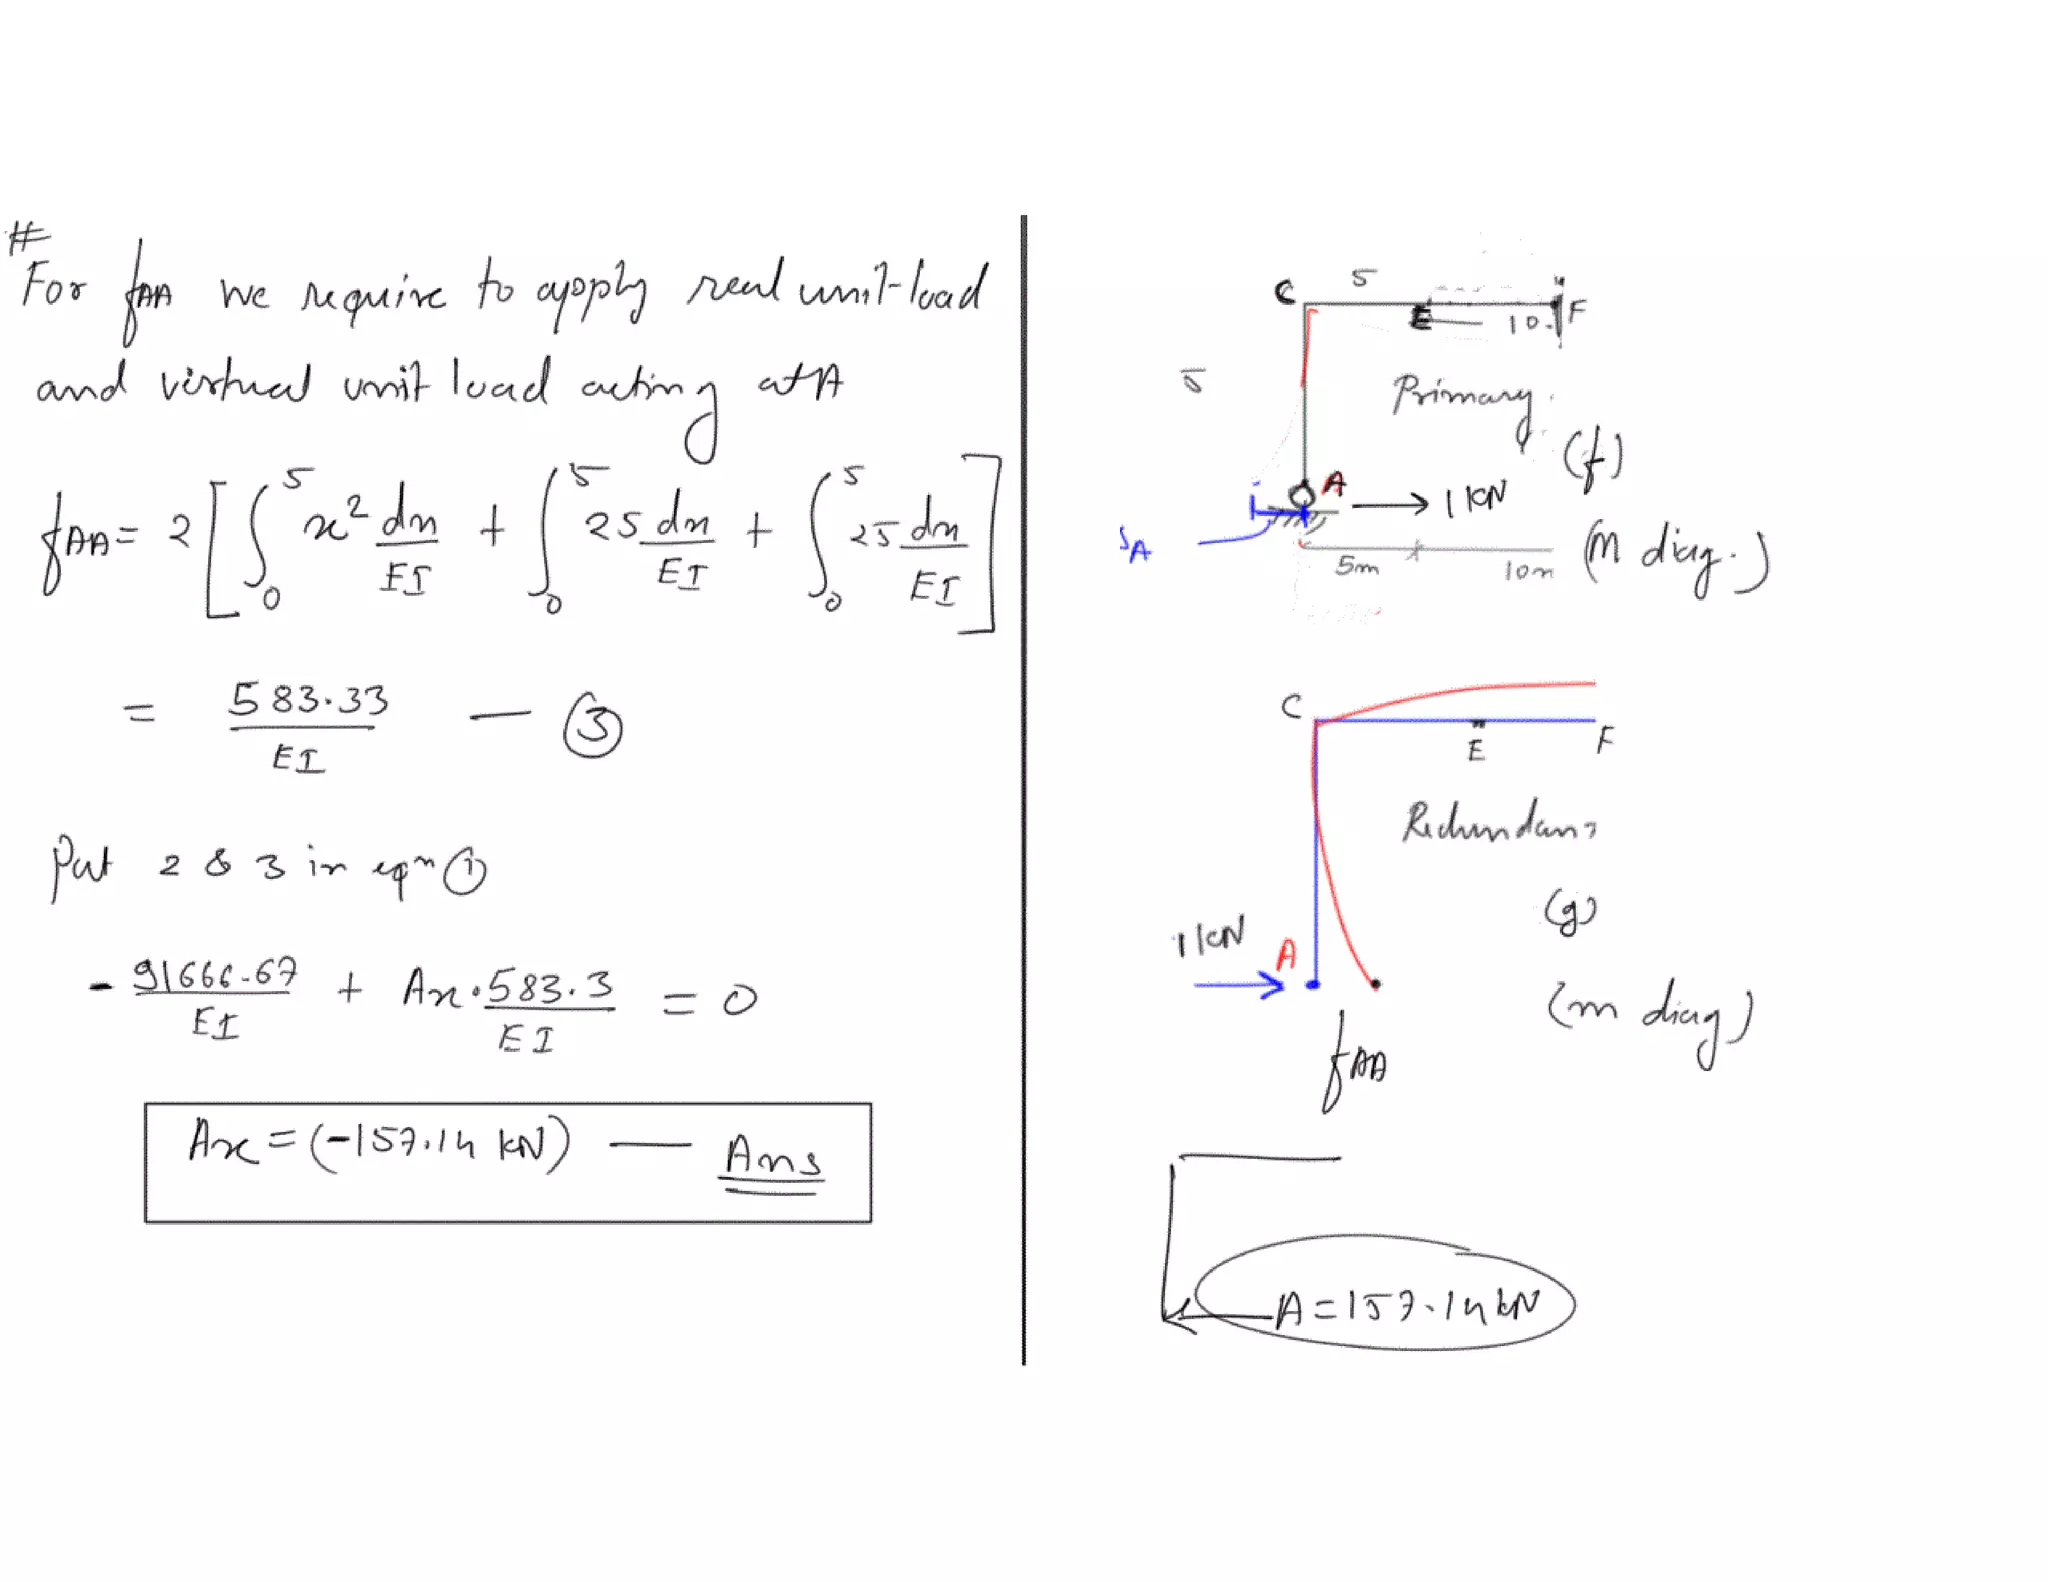 #
For fAA we require to apply real unit-load
and virtual unit load acting at A
fAA = 2 [ ∫₀⁵ x² dx/EI + ∫₀⁵ 25 dx/EI + ∫₀⁵ 25 dx/EI ]
= 583.33/EI — ③
Put 2 & 3 in eqn ①
- 91666.67/EI + Ax · 583.3/EI = 0
Ax = (-157.14 kN) — Ans
C 5
E 10. F
5
Primary
(f)
A → 1 kN
5m 10m
(M diag.)
C
E F
Redundant
(g)
1 kN A
(m diag)
fAA
A = 157.14 kN